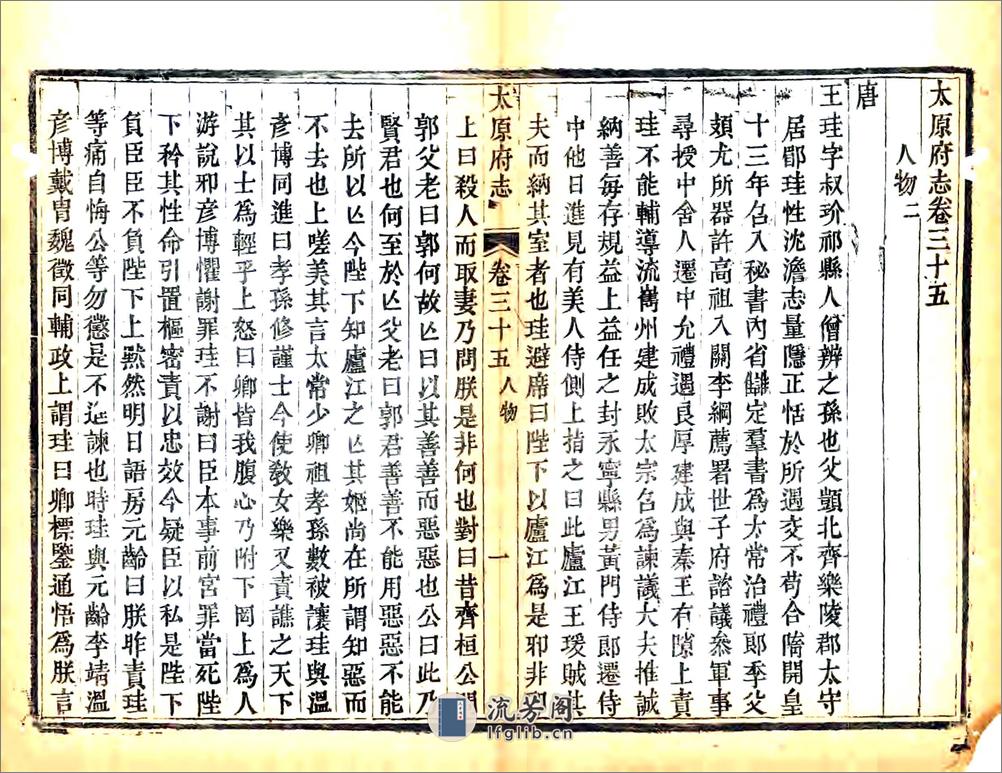 太原府志卷三十五
人物二
唐
王珪字叔玠祁縣人僧辨之孫也父顗北齊樂陵郡太守
居郿珪性沈澹志量隱正恬於所遇交不苟合隋開皇
十三年召入秘書內省讎定羣書爲太常治禮郎季父
頍尤所器許高祖入關李綱薦署世子府諮議參軍事
尋授中舍人遷中允禮遇良厚建成與秦王有隙上責
珪不能輔導流巂州建成敗太宗召爲諫議大夫推誠
納善每存規益上益任之封永寧縣男黃門侍郎遷侍
中他日進見有美人侍側上指之曰此廬江王瑗賊其
夫而納其室者也珪避席曰陛下以廬江爲是邪非
太原府志
卷三十五 人物
一
上曰殺人而取妻乃問朕是非何也對曰昔齊桓公
郭父老曰郭何故亾曰以其善善而惡惡也公曰此乃
賢君也何至於亾父老曰郭君善善不能用惡惡不能
去所以亾今陛下知廬江之亾其姬尚在所謂知惡而
不去也上嗟美其言太常少卿祖孝孫數被讓珪與溫
彥博同進曰孝孫修謹士今使敎女樂又責譙之天下
其以士爲輕乎上怒曰卿皆我腹心乃附下罔上爲人
游說邪彥博懼謝罪珪不謝曰臣本事前宮罪當死陛
下矜其性命引置樞密責以忠效今疑臣以私是陛下
負臣臣不負陛下上默然明日語房元齡曰朕昨責珪
等痛自悔公等勿懲是不進諫也時珪與元齡李靖溫
彥博戴冑魏徵同輔政上謂珪曰卿標鑒通悟爲朕言
流芳阁
lfglib.cn